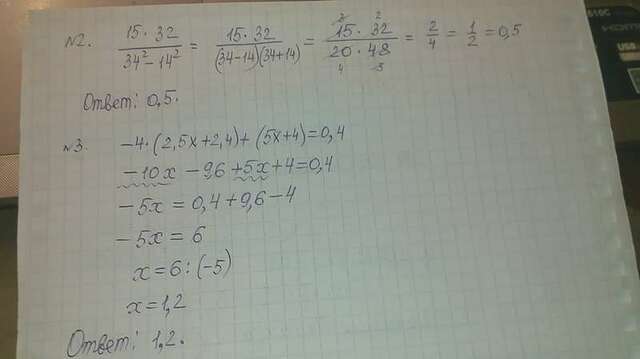 №2. 15·32/34²-14² = 15·32/(34-14)(34+14) = 15·32/20·48 = 2/4 = 1/2 = 0,5
Ответ: 0,5.
№3. -4·(2,5x+2,4)+(5x+4)=0,4
-10x - 9,6 +5x+4=0,4
-5x = 0,4+9,6-4
-5x = 6
x=6:(-5)
x=1,2
Ответ: 1,2.